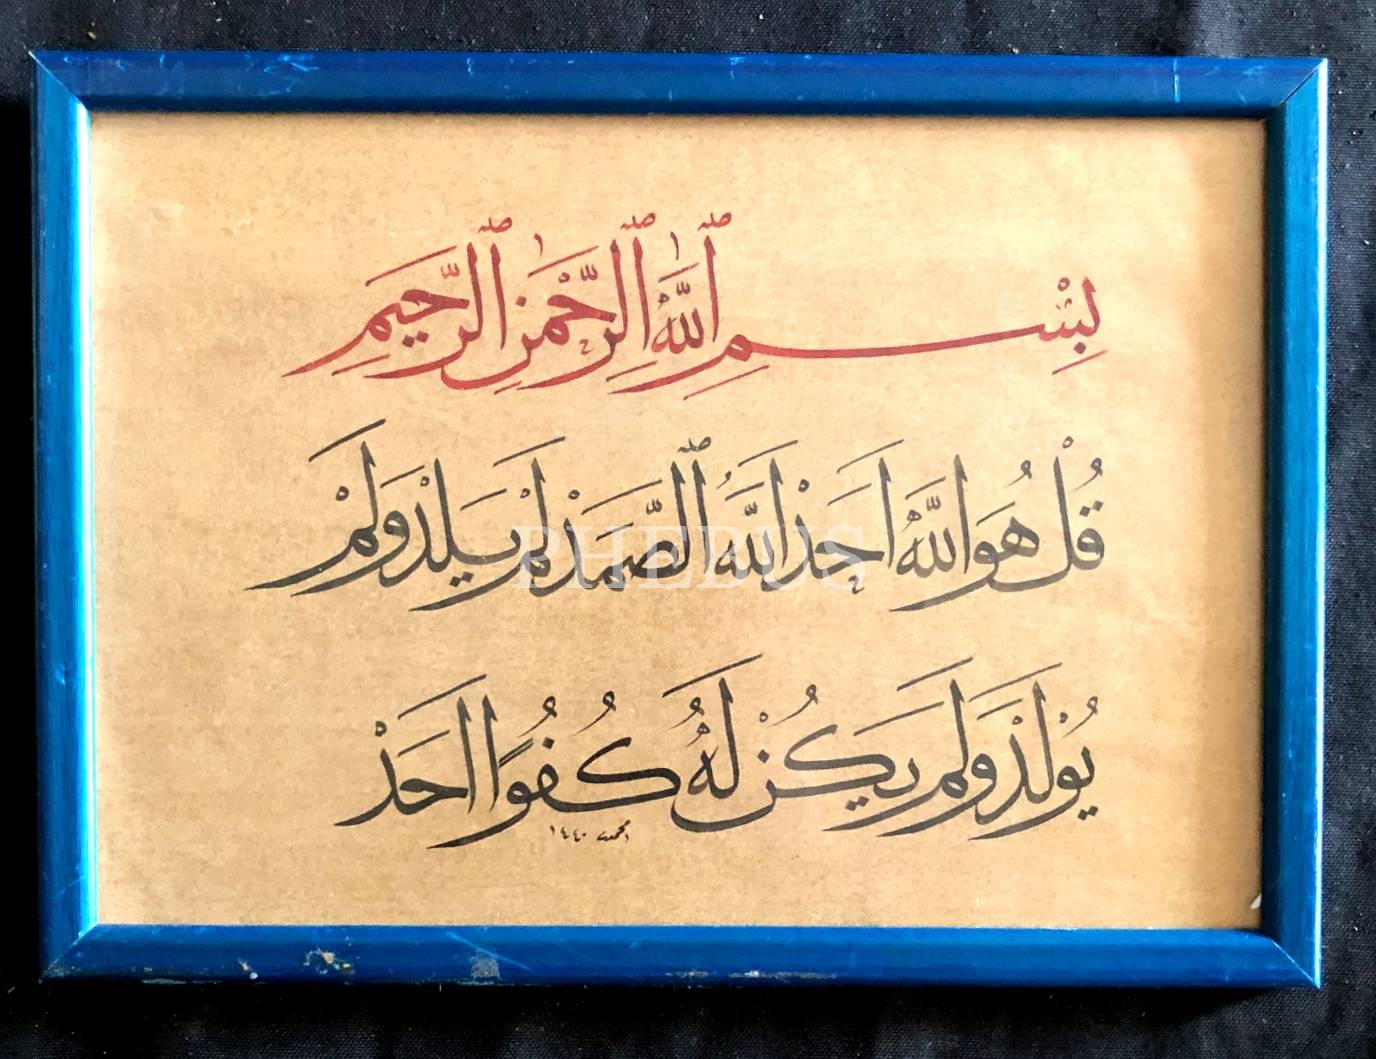 بِسْمِ ٱللّٰهِ ٱلرَّحْمٰنِ ٱلرَّحِيمِ
قُلْ هُوَ اللّٰهُ اَحَدْ اَللّٰهُ ٱلصَّمَدْ لَمْ يَلِدْ وَلَمْ
يُوْلَدْ وَلَمْ يَكُنْ لَهُ كُفُوًا اَحَدْ
١٤٤٠
PHEBUS